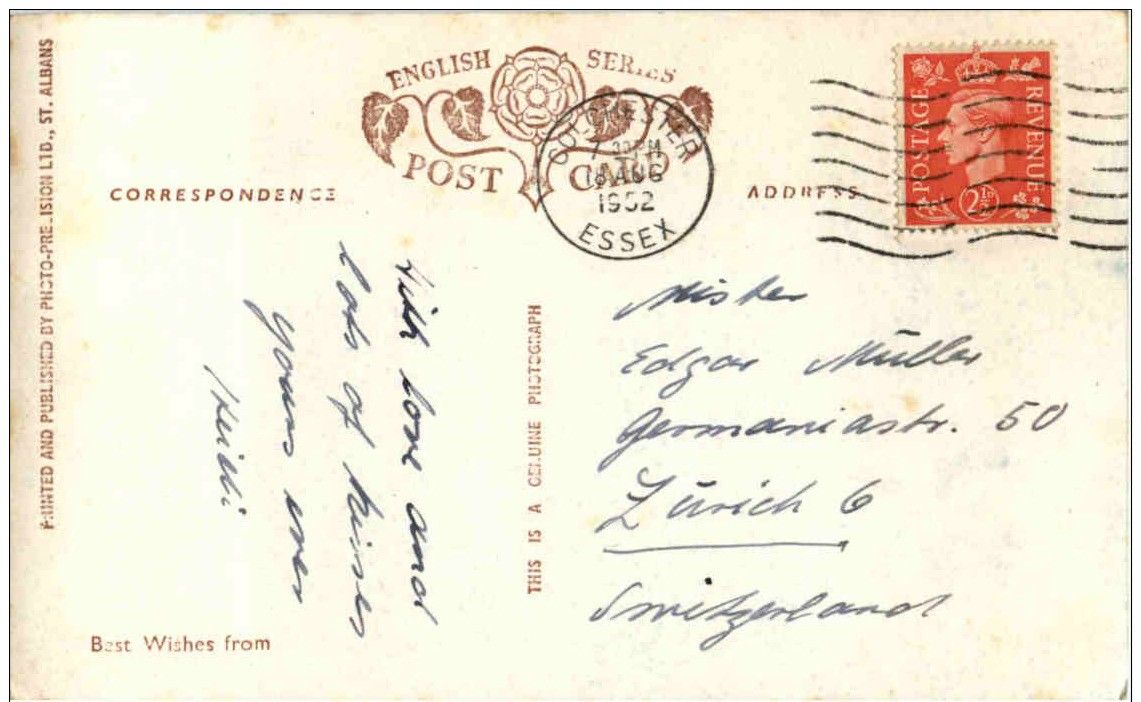 PRINTED AND PUBLISHED BY PHOTO-PRECISION LTD., ST. ALBANS
ENGLISH SERIES
POST CARD
CORRESPONDENCE
ADDRESS
COLCHESTER
7 30 PM
AUG
1952
ESSEX
POSTAGE
REVENUE
2½D
With love and
lots of kisses
yours ever
Heidi
THIS IS A GENUINE PHOTOGRAPH
Mister
Edgar Müller
Germaniastr. 50
Zürich 6
Switzerland
Best Wishes from